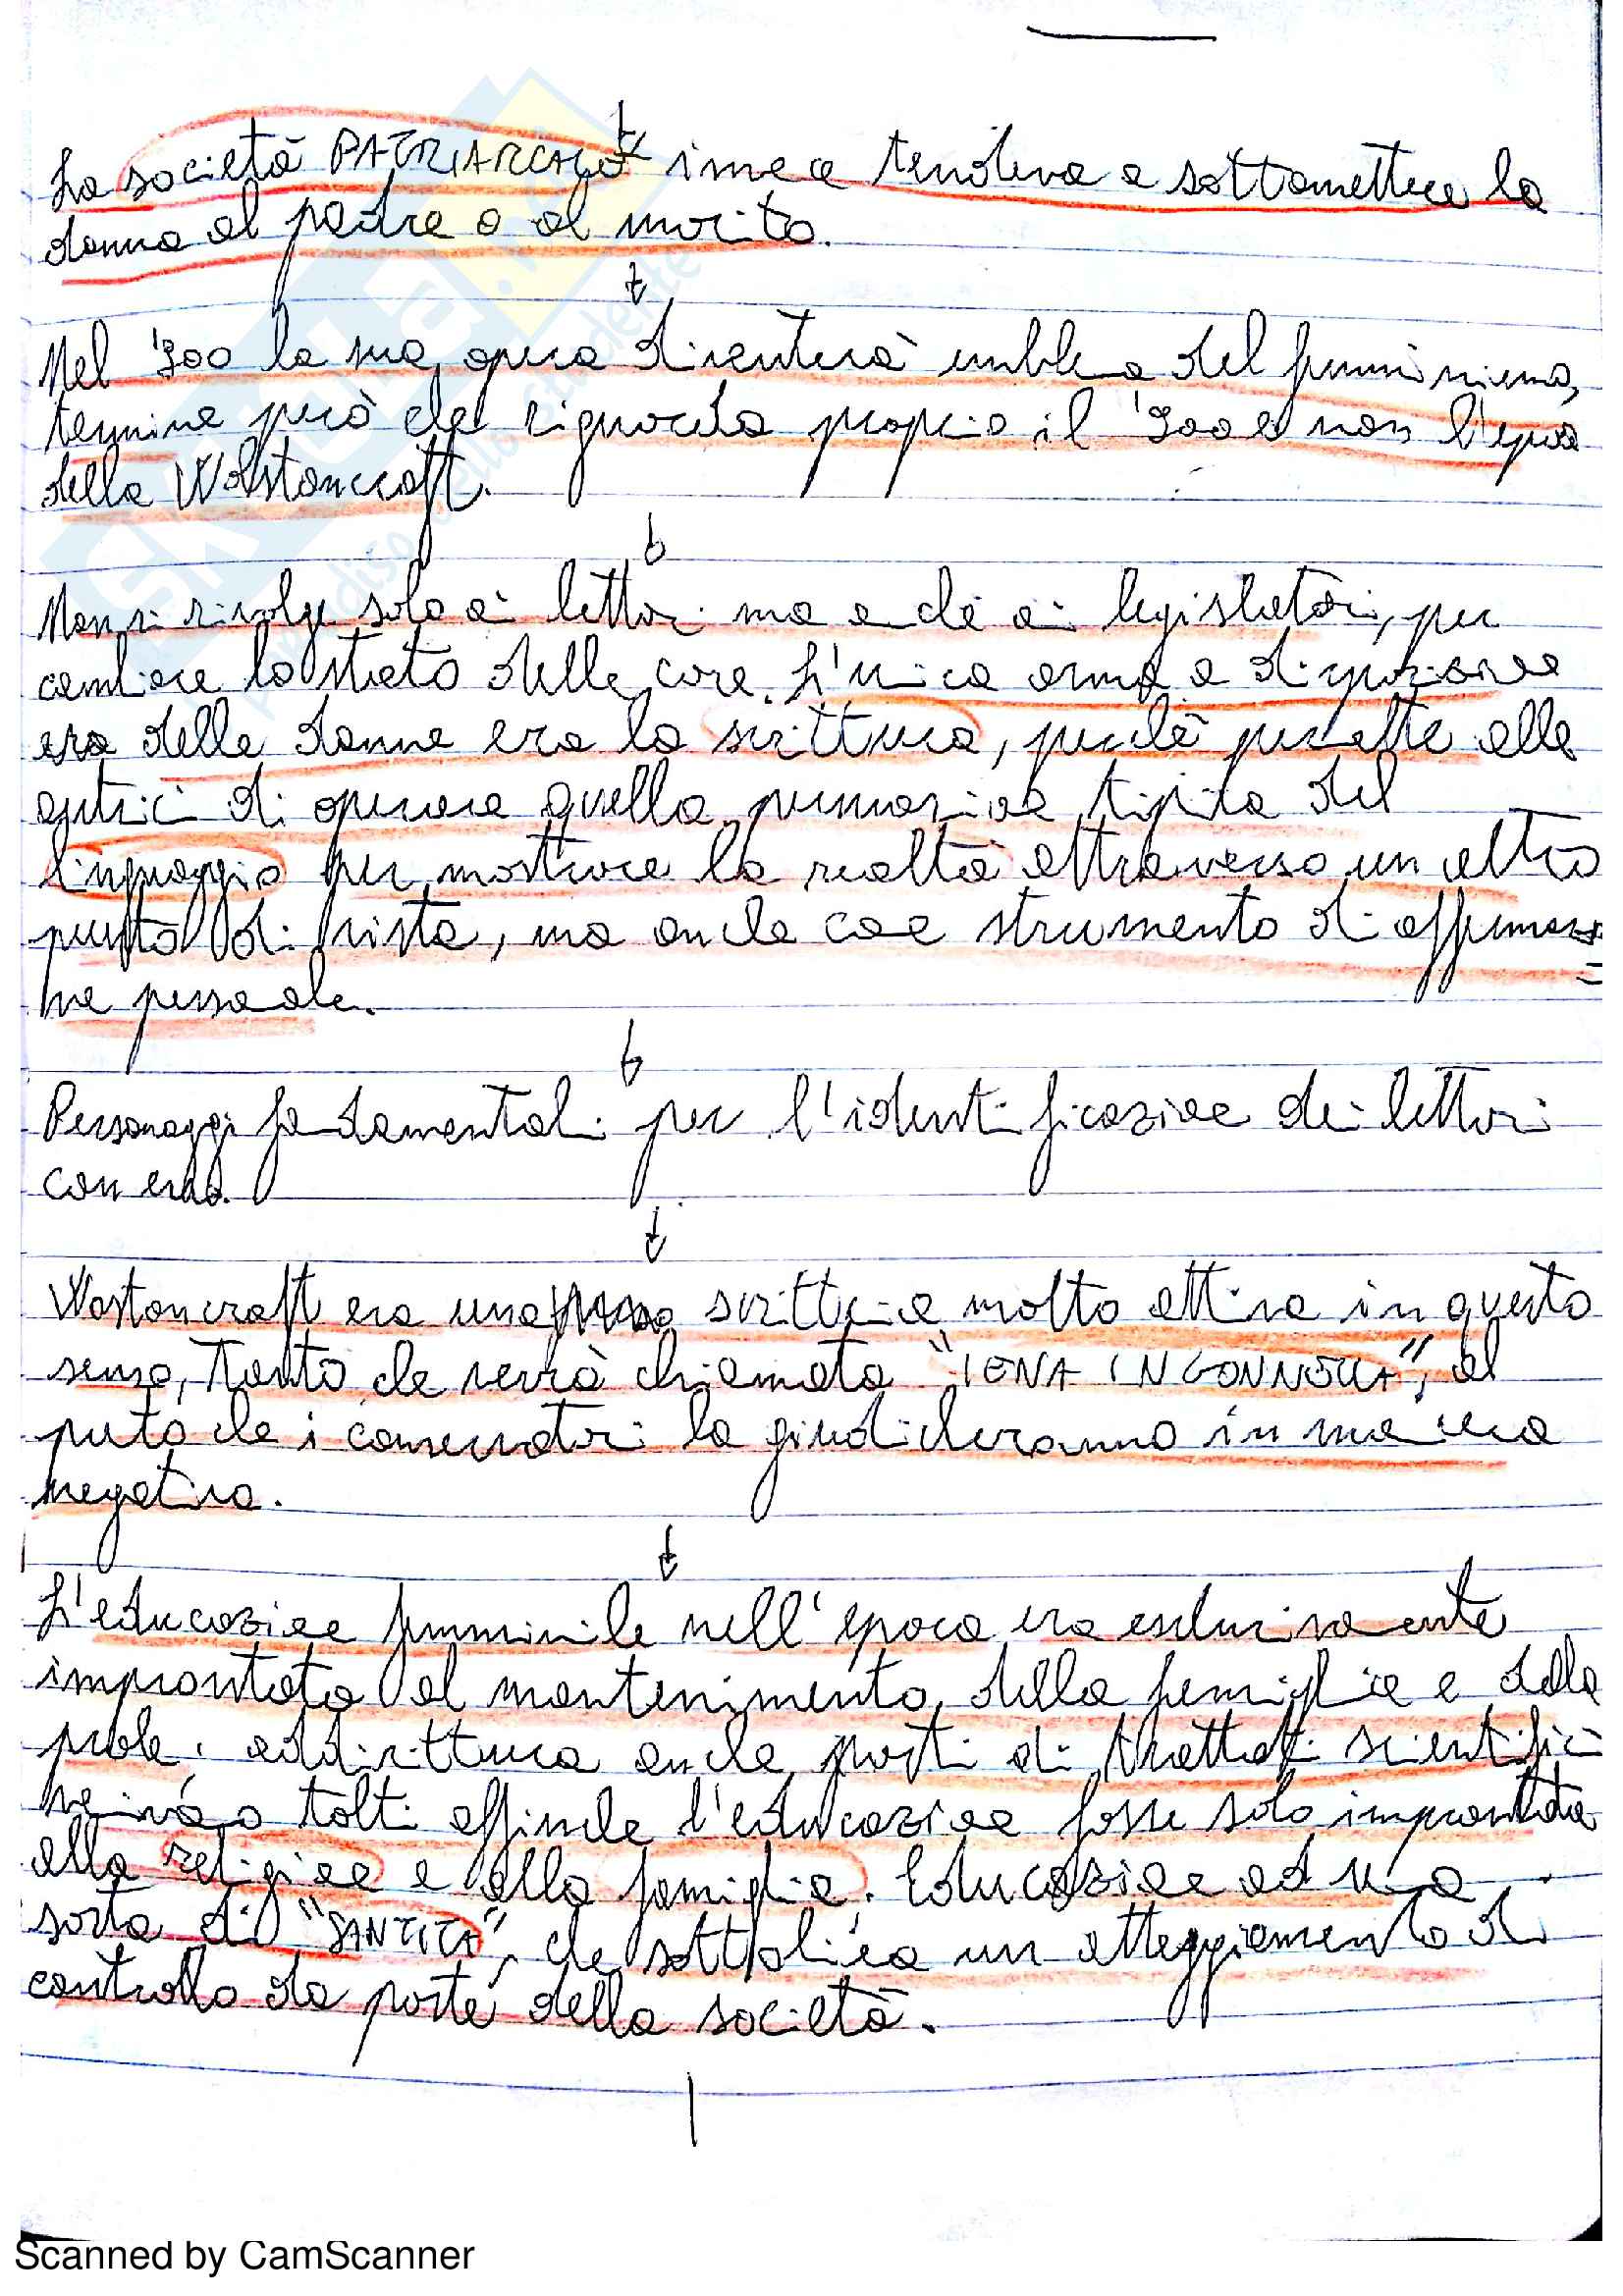 La società PATRIARCALE invece tendeva a sottomettere la
donna al padre o al marito.
Nel '900 la sua opera diventerà emblema del femminismo,
termine però che riguarda proprio il '900 e non l'epoca
della Wolstoncraft.
Non si rivolge solo ai lettori ma anche ai legislatori, per
cambiare lo stato delle cose. L'unica arma a disposizione
era delle donne era la scrittura, perchè permette alle
autrici di operare quella persuasione tipica del
linguaggio per mostrare la realtà attraverso un altro
punto di vista, ma anche come strumento di affermazio=
ne personale.
Personaggi fondamentali per l'identificazione dei lettori
con essi.
Wostoncraft era una scrittrice molto attiva in questo
senso, tanto che verrà chiamata "IENA IN GONNELLA", al
punto che i conservatori la giudicheranno in maniera
negativa.
L'educazione femminile nell'epoca era esclusivamente
improntata al mantenimento della famiglia e della
prole. addirittura anche parti di trattati scientifici
venivano tolti affinchè l'educazione fosse solo improntata
alla religione e alla famiglia. Educazione ad una
sorta di "SANTITÀ", che sottolinea un atteggiamento di
controllo da parte della società.
SKUOLA.net
paradiso dello studente
Scanned by CamScanner